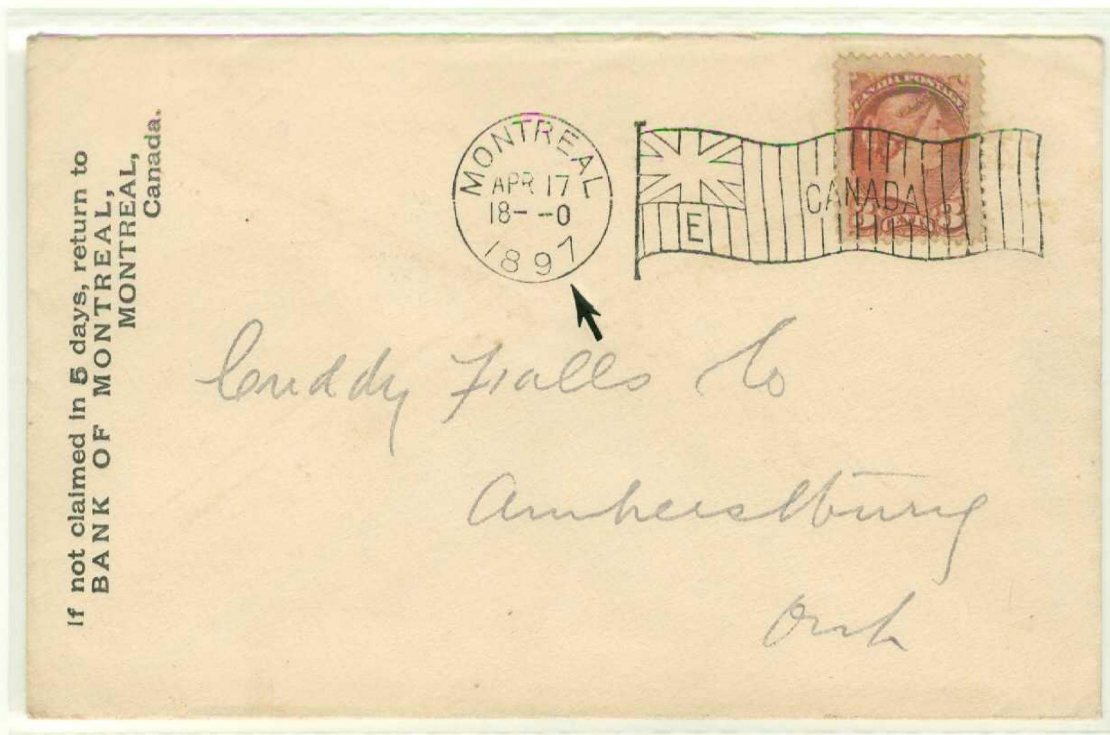 If not claimed in 5 days, return to
BANK OF MONTREAL,
MONTREAL,
Canada.
MONTREAL
APR 17
18- -0
1897
E
CANADA
CANADA POSTAGE
3 CENTS 3
Cuddy Falls Co
Amherstburg
Ont